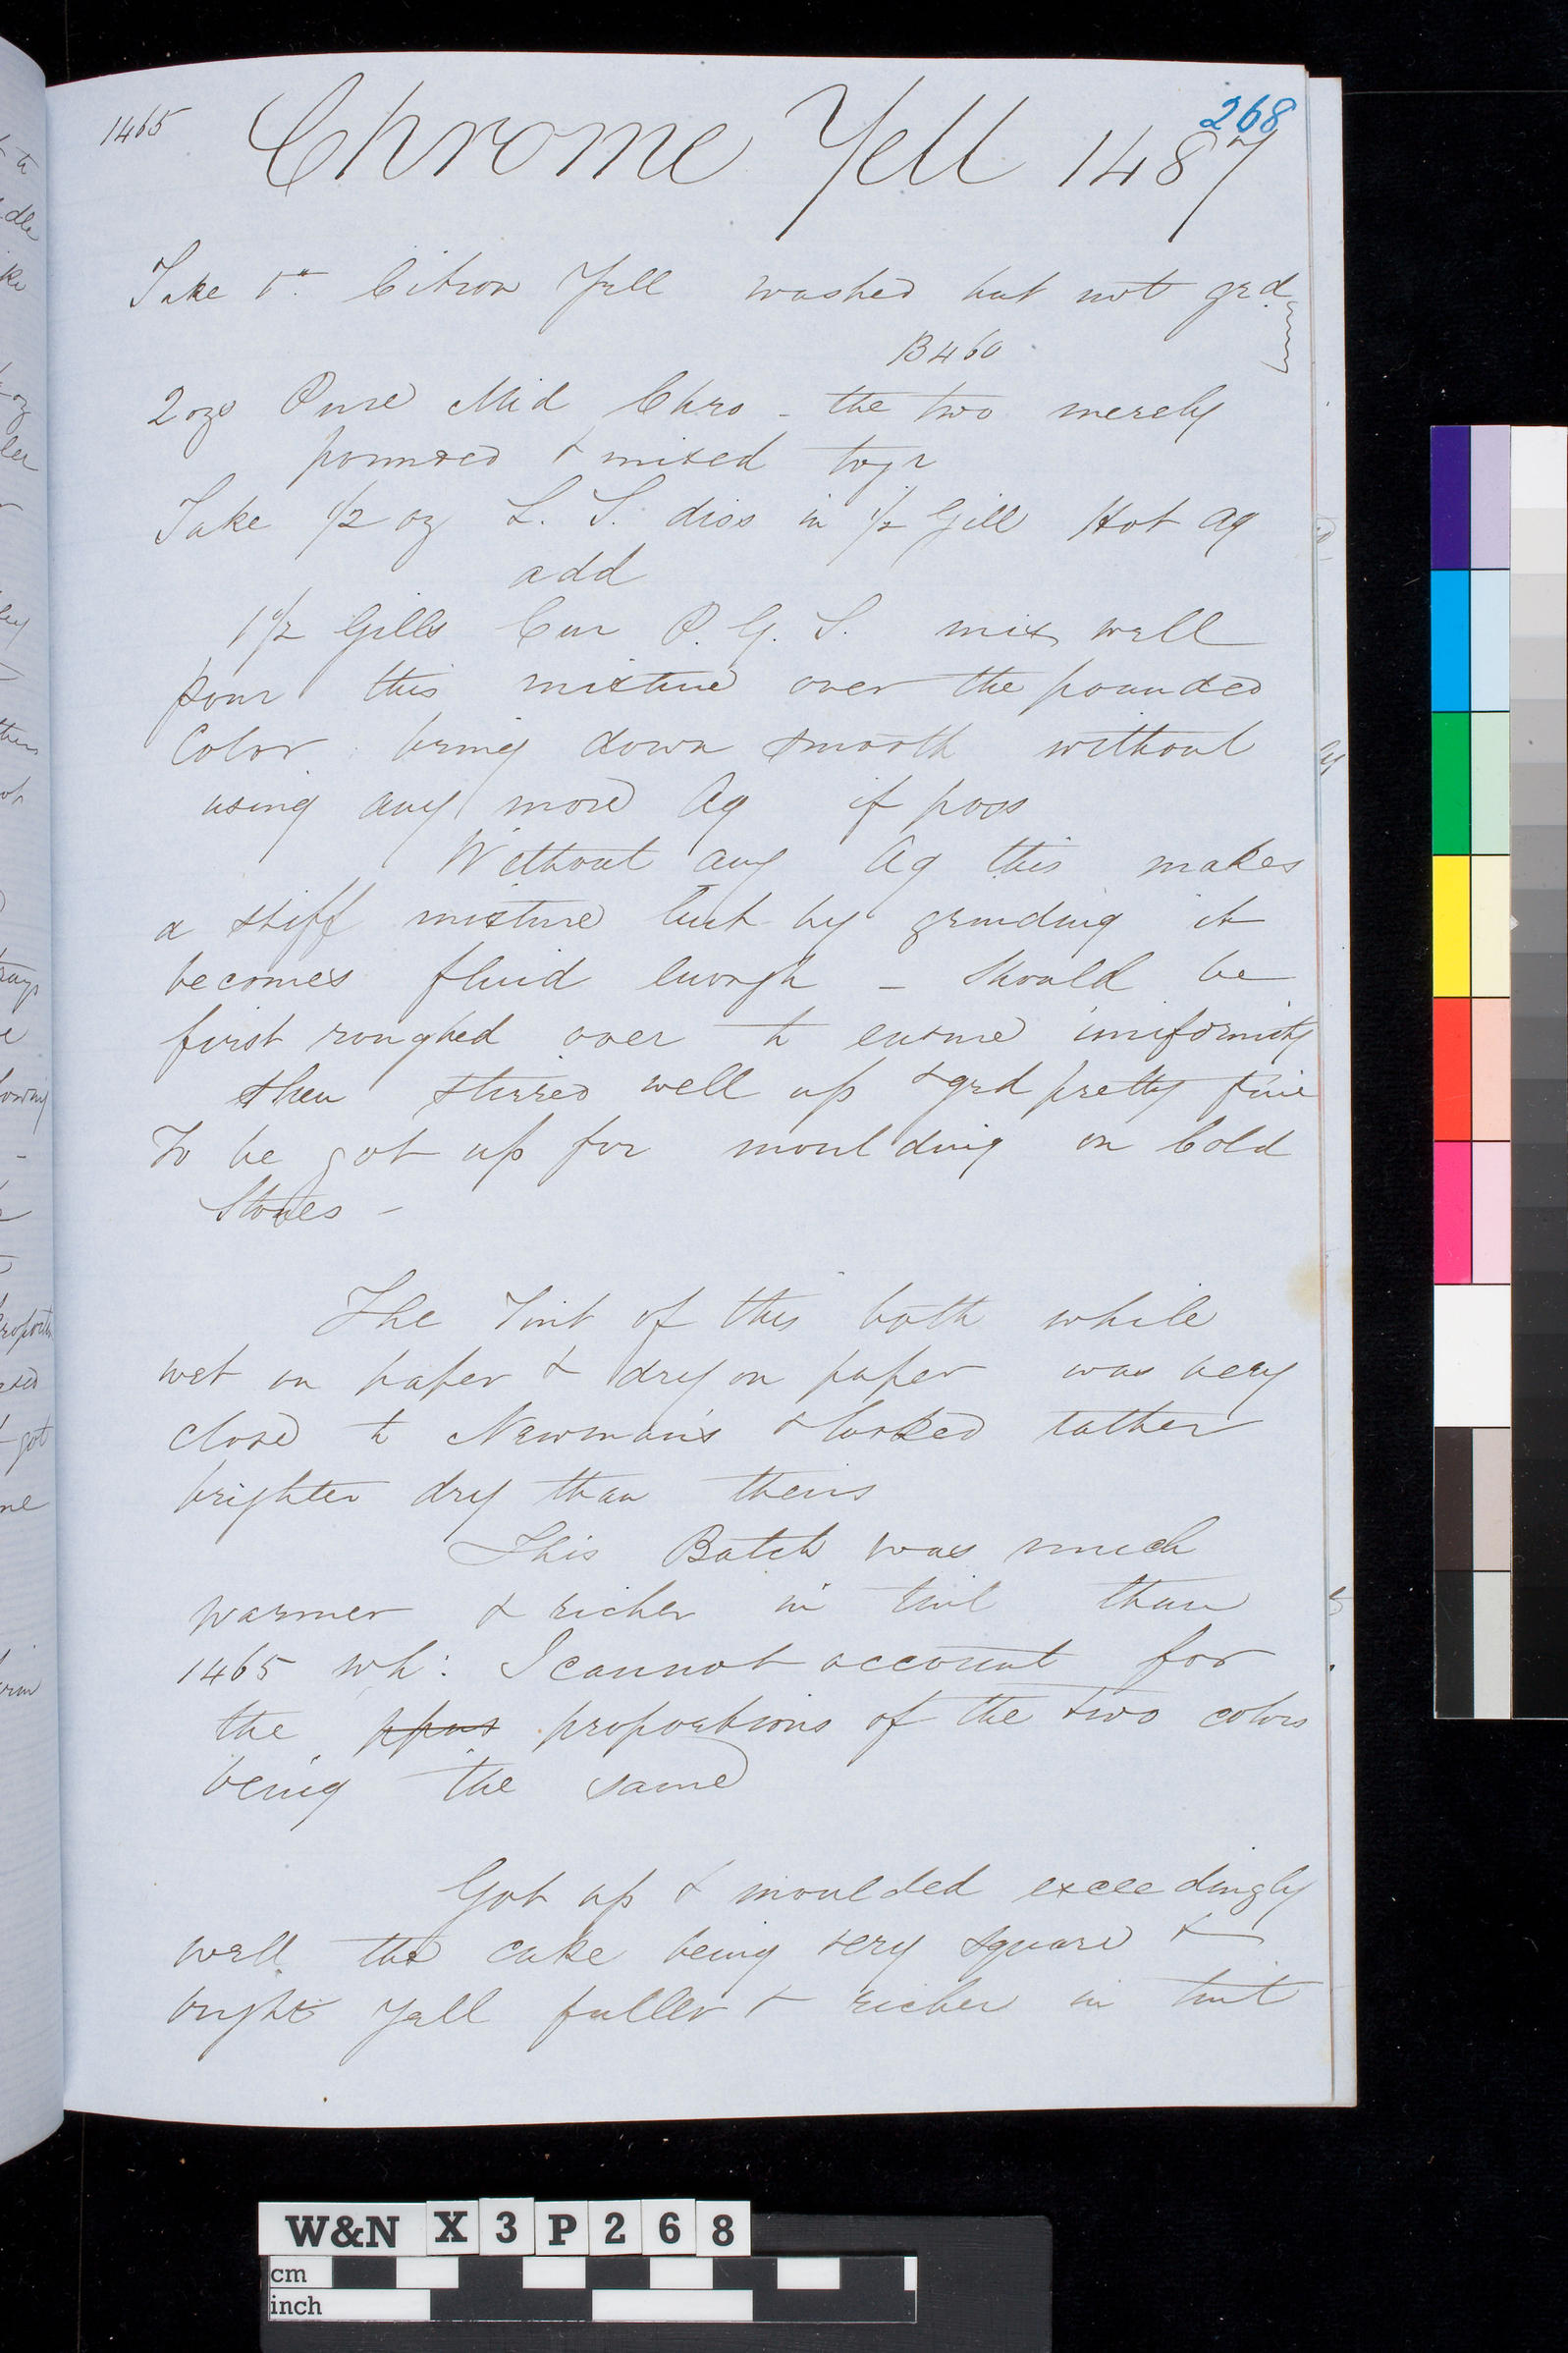 268
1465 Chrome Yell 1487
Take 1lb Citron Yell washed but not grd.
B460
2 ozs Pure Mid Chro - the two merely
pounded & mixed togr
Take 1/2 oz L. S. diss in 1/2 Gill Hot Aq
add
1 1/2 Gills Cur P. G. S. mix well
pour this mixture over the pounded
Color bring down smooth without
using any more Aq if poss
Without any Aq this makes
a stiff mixture but by grinding it
becomes fluid enough - should be
first roughed over to ensure uniformity
then stirred well up & grd pretty fine
To be got up for moulding on Cold
Stones -
The Tint of this both while
wet on paper & dry on paper was very
close to Newman's & looked rather
brighter dry than theirs
This Batch was much
warmer & richer in tint than
1465 wh: I cannot account for
the proportions of the two colors
being the same
Got up & moulded exceedingly
well the cake being very square &
bright Yell fuller & richer in tint
W&N X 3 P 2 6 8
cm
inch